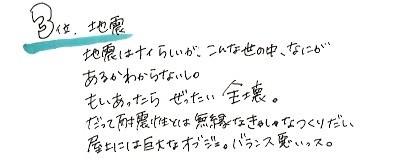 3位. 地震
地震はナイらしいが、こんな世の中、なにが
あるかわからないし。
もしあったら ぜったい 全壊。
だって耐震性とは無縁なきゃしゃなつくりだし、
屋上には巨大なオブジェ。バランス悪いっス。